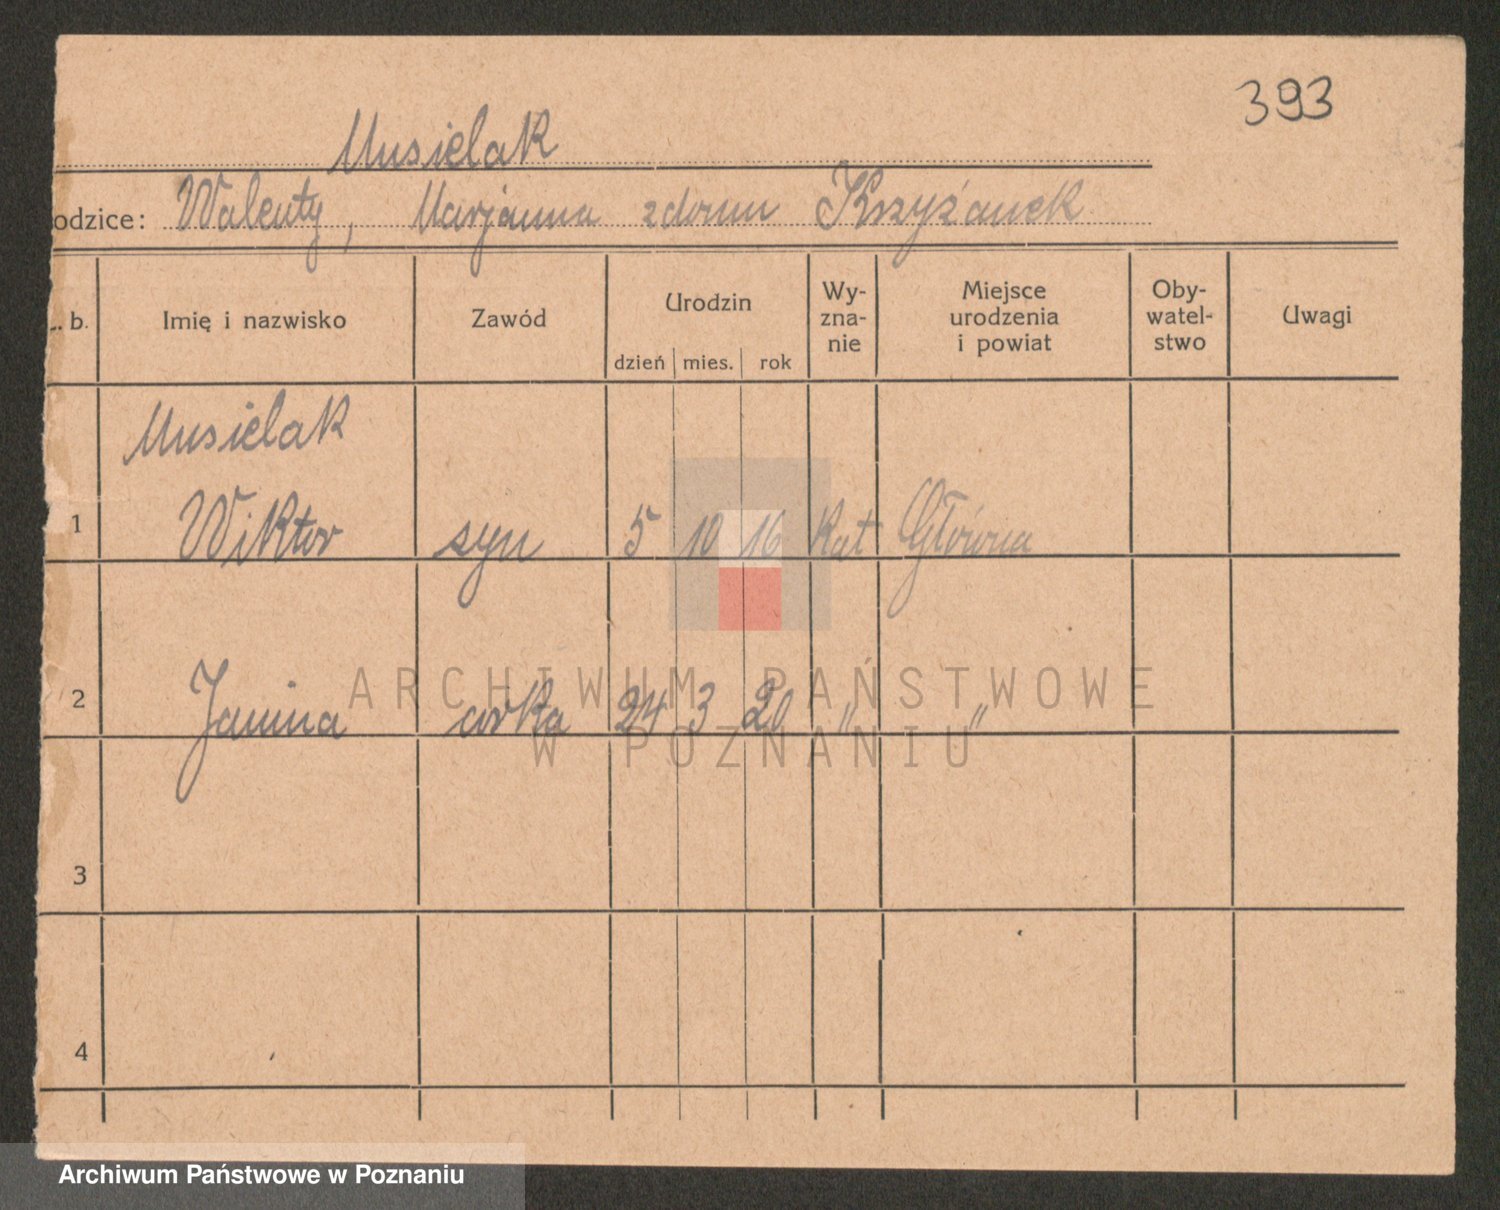 393
Musielak
odzice: Walenty, Marjanna z domu Krzyżanek
. b. Imię i nazwisko Zawód Urodzin dzień mies. rok Wy-zna-nie Miejsce urodzenia i powiat Oby-watel-stwo Uwagi
Musielak
1 Wiktor syn 5 10 16 Kat Główna
2 Janina córka 24 3 20 " "
3
4
ARCHIWUM PAŃSTWOWE
W POZNANIU
Archiwum Państwowe w Poznaniu